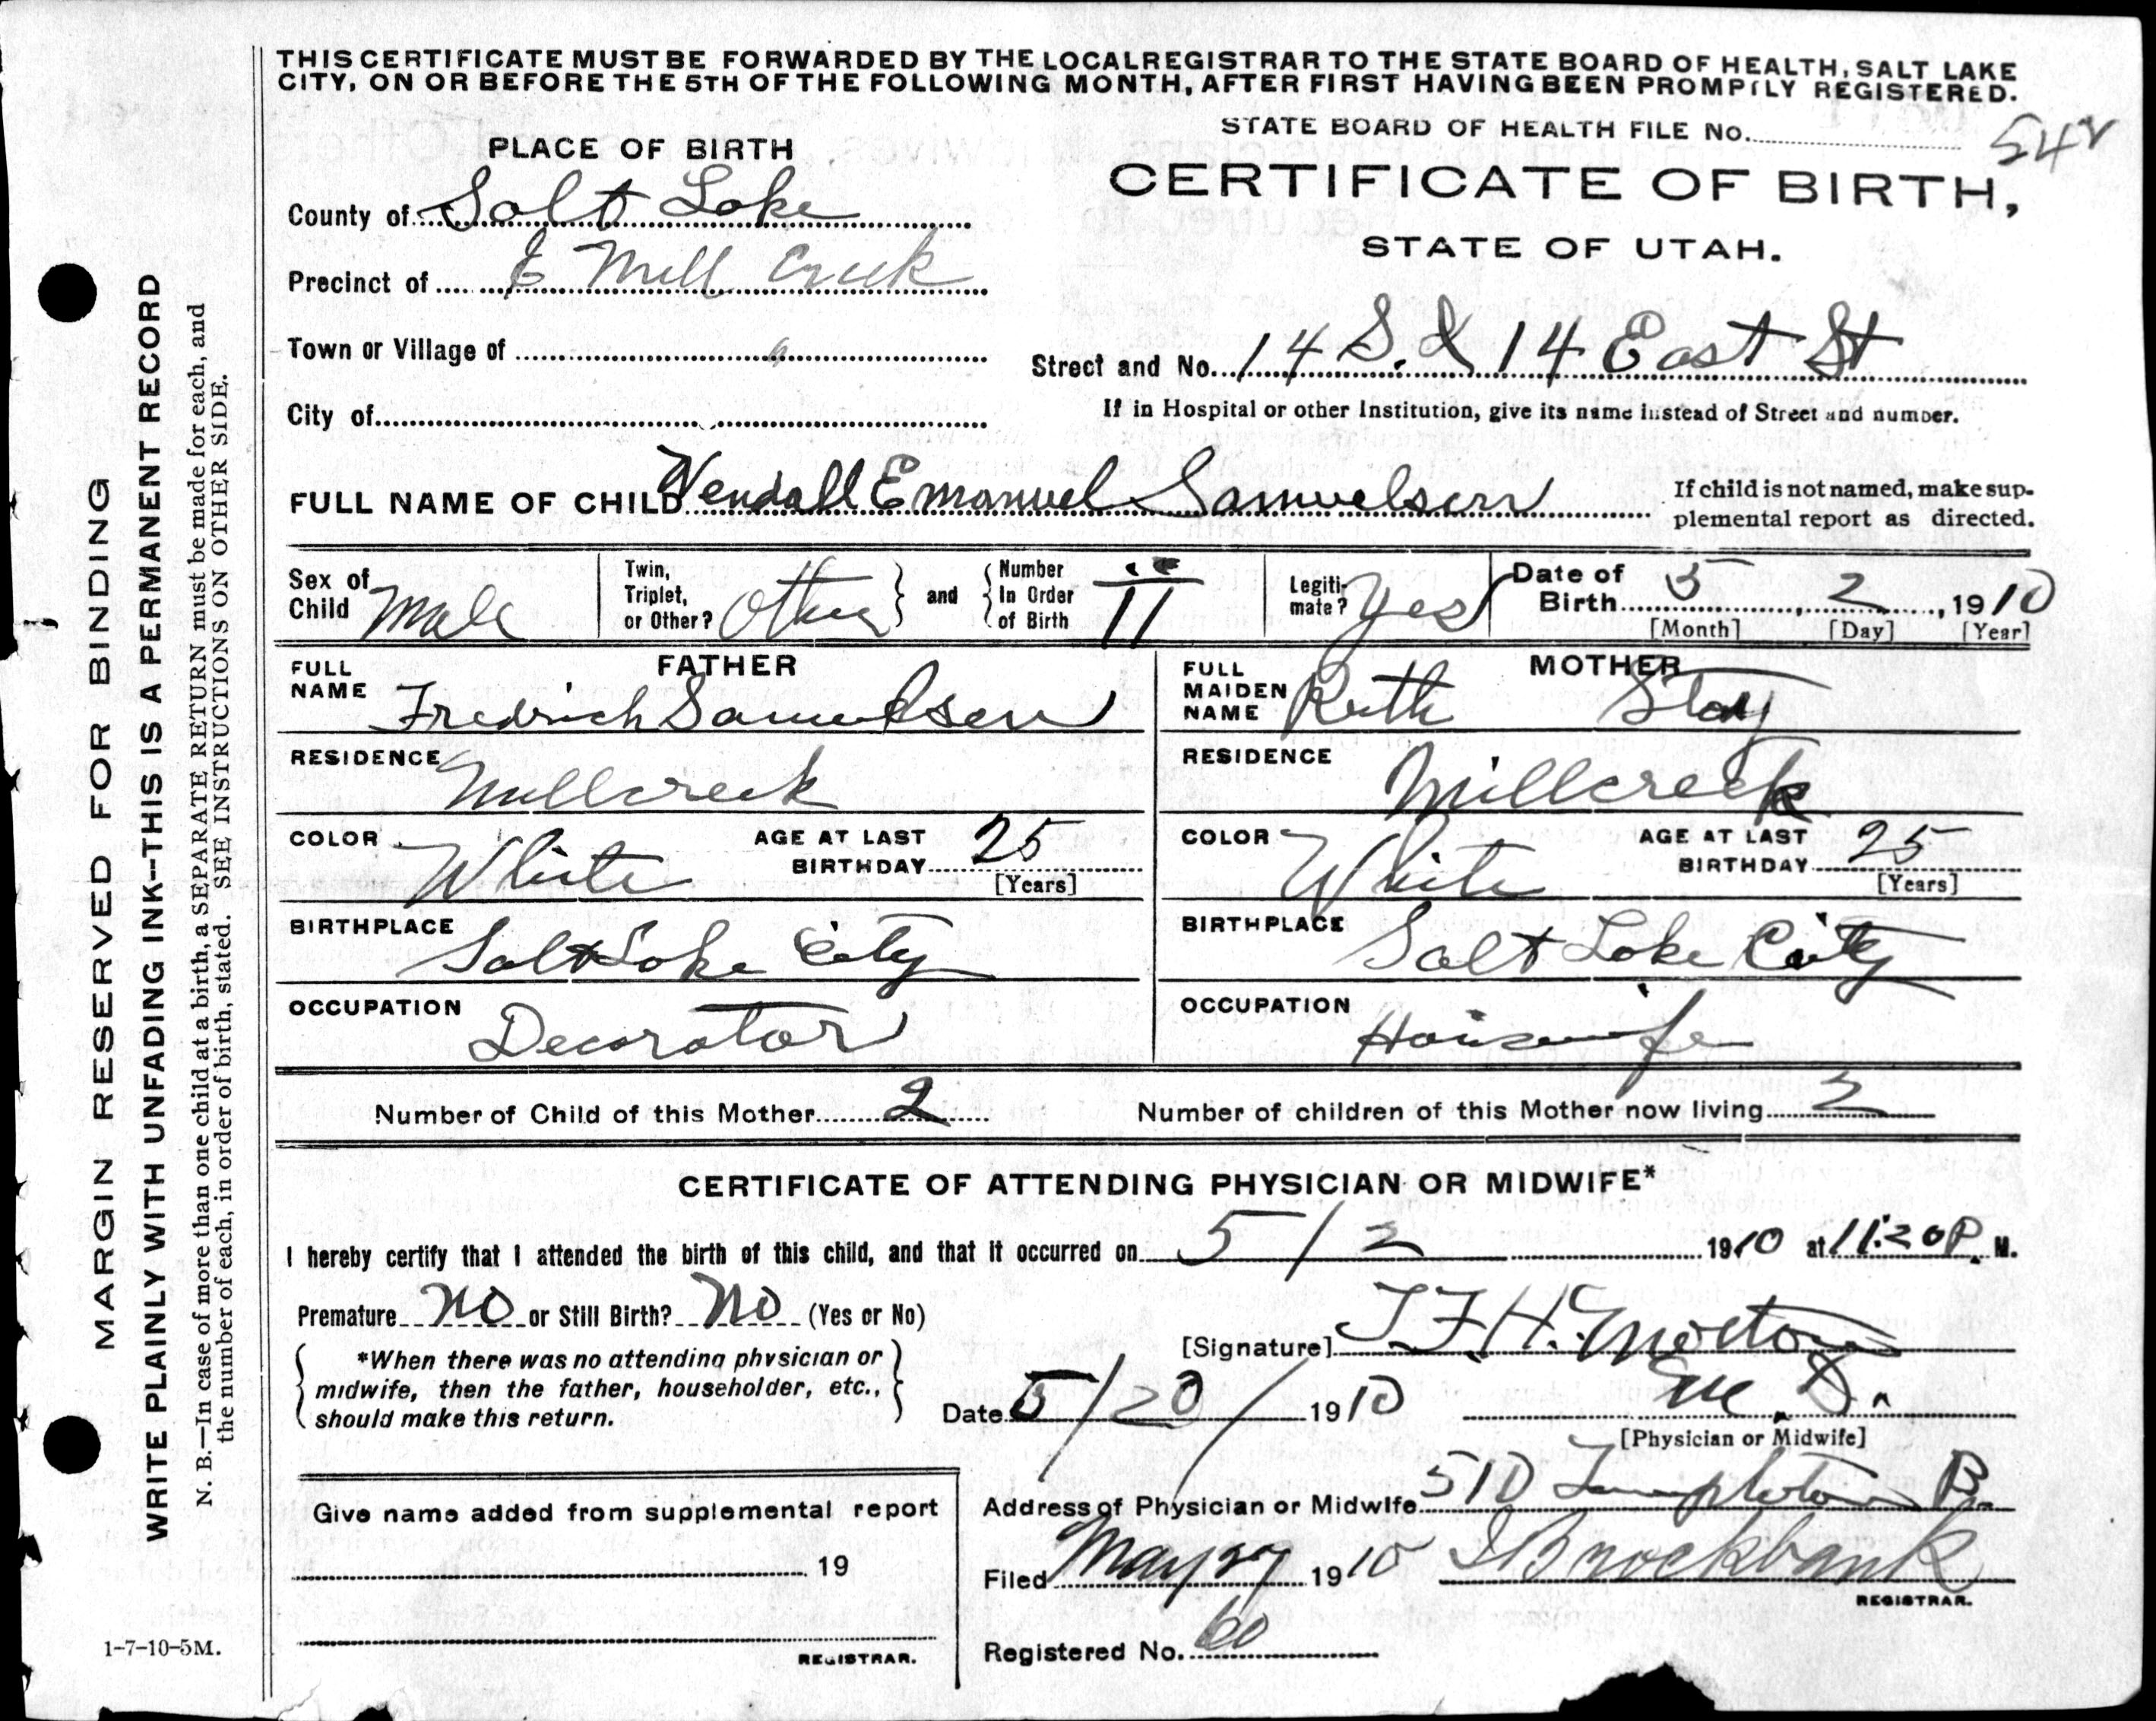 THIS CERTIFICATE MUST BE FORWARDED BY THE LOCAL REGISTRAR TO THE STATE BOARD OF HEALTH, SALT LAKE
CITY, ON OR BEFORE THE 5TH OF THE FOLLOWING MONTH, AFTER FIRST HAVING BEEN PROMPTLY REGISTERED.
STATE BOARD OF HEALTH FILE No. 542
PLACE OF BIRTH
CERTIFICATE OF BIRTH,
STATE OF UTAH.
County of Salt Lake
Precinct of E Mill Creek
Town or Village of
Street and No. 14 S. & 14 East St
City of
If in Hospital or other Institution, give its name instead of Street and number.
FULL NAME OF CHILD Wendall Emanuel Samuelson
If child is not named, make sup-
plemental report as directed.
Sex of Child Male
Twin, Triplet, or Other? Other and Number In Order of Birth II
Legiti-mate? Yes
Date of Birth 5, 2, 1910
[Month] [Day] [Year]
FATHER
FULL NAME Fredrich Samuelsen
RESIDENCE Millcreek
COLOR White AGE AT LAST BIRTHDAY 25
[Years]
BIRTHPLACE Salt Lake City
OCCUPATION Decorator
MOTHER
FULL MAIDEN NAME Ruth Stay
RESIDENCE Millcreek
COLOR White AGE AT LAST BIRTHDAY 25
[Years]
BIRTHPLACE Salt Lake City
OCCUPATION Housewife
Number of Child of this Mother 2 Number of children of this Mother now living 2
CERTIFICATE OF ATTENDING PHYSICIAN OR MIDWIFE*
I hereby certify that I attended the birth of this child, and that it occurred on 5/2 1910 at 11:20 P. M.
Premature No or Still Birth? No (Yes or No)
[Signature] T. F. H. Morton
M. D.
[Physician or Midwife]
*When there was no attending physician or
midwife, then the father, householder, etc.,
should make this return.
Date 5/20/1910
Address of Physician or Midwife 510 Templeton B.
Give name added from supplemental report
19
REGISTRAR.
Filed May 27 1910 Brockbank
REGISTRAR.
Registered No. 60
1-7-10-5M.
MARGIN RESERVED FOR BINDING
WRITE PLAINLY WITH UNFADING INK--THIS IS A PERMANENT RECORD
N. B.—In case of more than one child at a birth, a SEPARATE RETURN must be made for each, and
the number of each, in order of birth, stated. SEE INSTRUCTIONS ON OTHER SIDE.